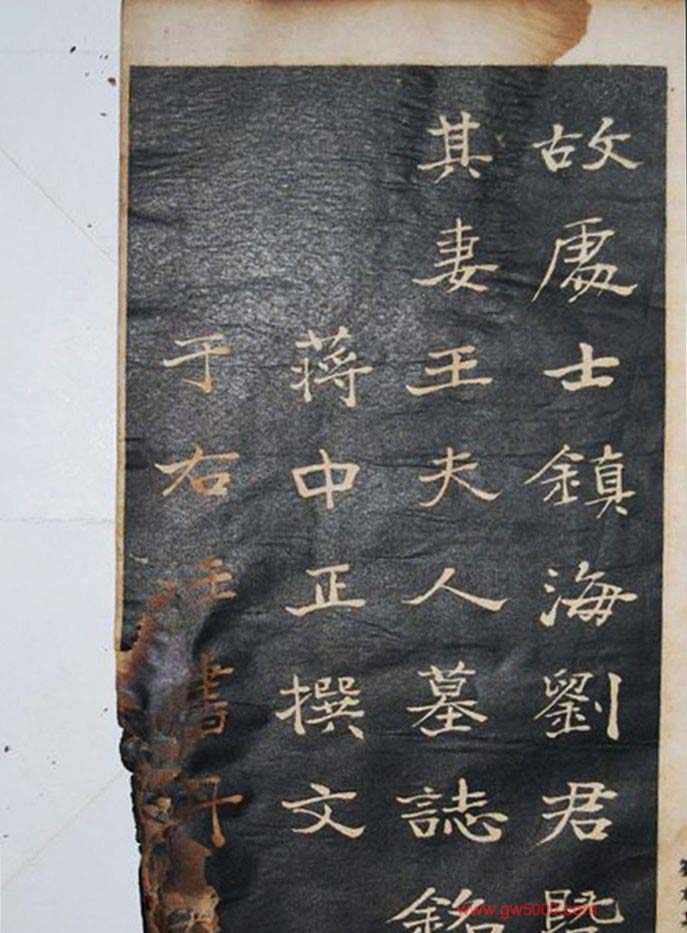 故處士鎮海劉君暨
其妻王夫人墓誌銘
蔣中正撰文
于右任書丹